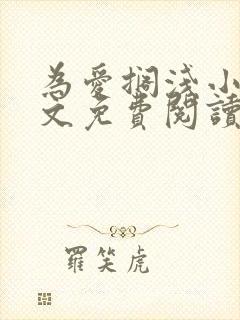 為愛擱淺小
文免費閱讀
羅笑虎